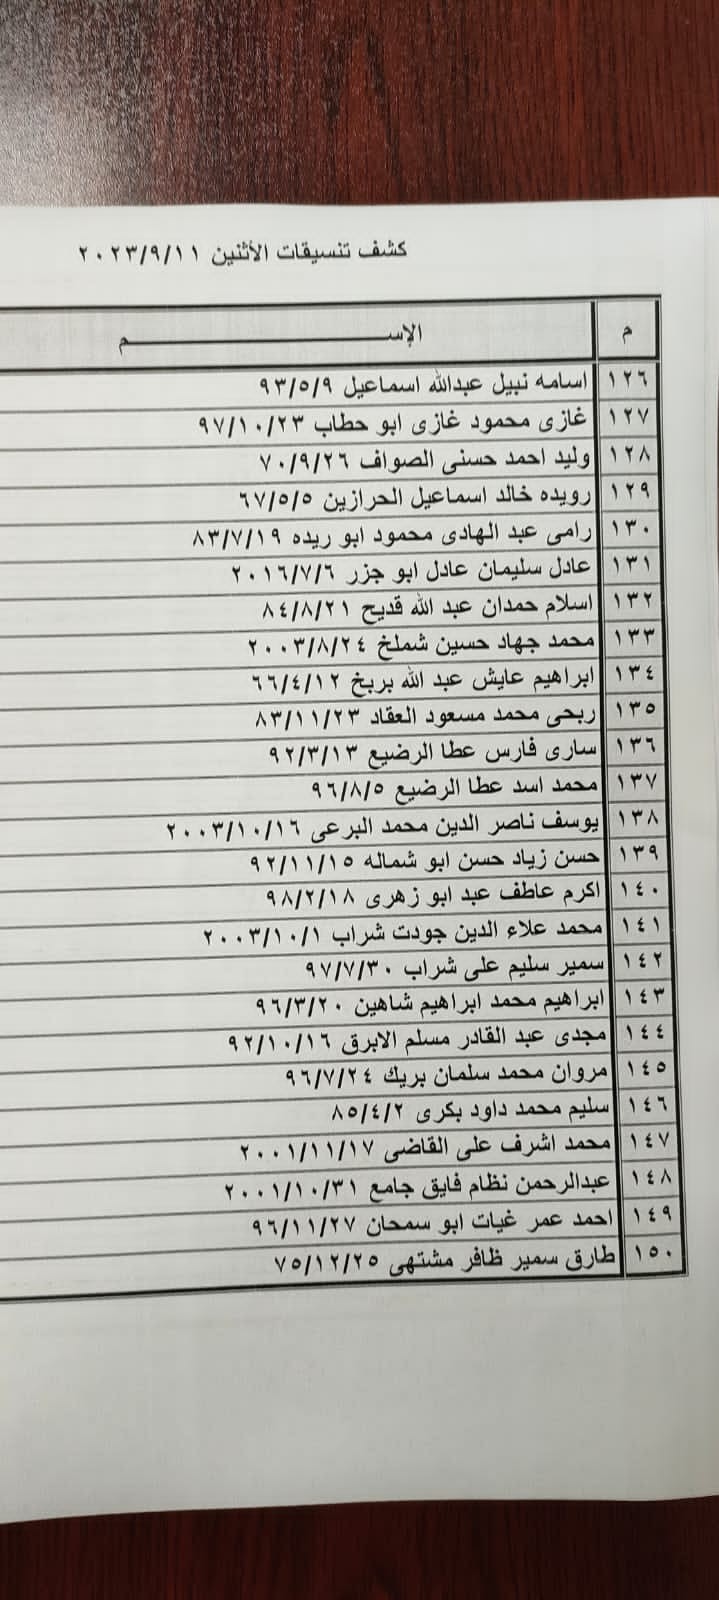 كشف تنسيقات الأثنين ٢٠٢٣/٩/١١
م الإســـــــم
١٢٦ اسامه نبيل عبدالله اسماعيل ٩٣/٥/٩
١٢٧ غازى محمود غازى ابو حطاب ٩٧/١٠/٢٣
١٢٨ وليد احمد حسنى الصواف ٧٠/٩/٢٦
١٢٩ رويده خالد اسماعيل الحرازين ٦٧/٥/٥
١٣٠ رامى عبد الهادى محمود ابو ريده ٨٣/٧/١٩
١٣١ عادل سليمان عادل ابو جزر ٢٠١٦/٧/٦
١٣٢ اسلام حمدان عبد الله قديح ٨٤/٨/٢١
١٣٣ محمد جهاد حسين شملخ ٢٠٠٣/٨/٢٤
١٣٤ ابراهيم عايش عبد الله بربخ ٦٦/٤/١٢
١٣٥ ربحى محمد مسعود العقاد ٨٣/١١/٢٣
١٣٦ سارى فارس عطا الرضيع ٩٢/٣/١٣
١٣٧ محمد اسد عطا الرضيع ٩٦/٨/٥
١٣٨ يوسف ناصر الدين محمد البرعى ٢٠٠٣/١٠/١٦
١٣٩ حسن زياد حسن ابو شماله ٩٢/١١/١٥
١٤٠ اكرم عاطف عبد ابو زهرى ٩٨/٢/١٨
١٤١ محمد علاء الدين جودت شراب ٢٠٠٣/١٠/١
١٤٢ سمير سليم على شراب ٩٧/٧/٣٠
١٤٣ ابراهيم محمد ابراهيم شاهين ٩٦/٣/٢٠
١٤٤ مجدى عبد القادر مسلم الابرق ٩٢/١٠/١٦
١٤٥ مروان محمد سلمان بريك ٩٦/٧/٢٤
١٤٦ سليم محمد داود بكرى ٨٥/٤/٢
١٤٧ محمد اشرف على القاضى ٢٠٠١/١١/١٧
١٤٨ عبدالرحمن نظام فايق جامع ٢٠٠١/١٠/٣١
١٤٩ احمد عمر غيات ابو سمحان ٩٦/١١/٢٧
١٥٠ طارق سمير ظافر مشتهى ٧٥/١٢/٢٥